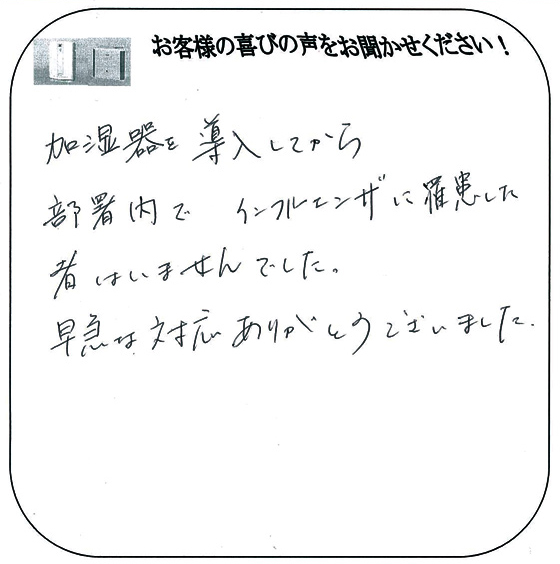 お客様の喜びの声をお聞かせください！
加湿器を導入してから
部署内で インフルエンザに罹患した
者はいませんでした。
早急な対応ありがとうございました.